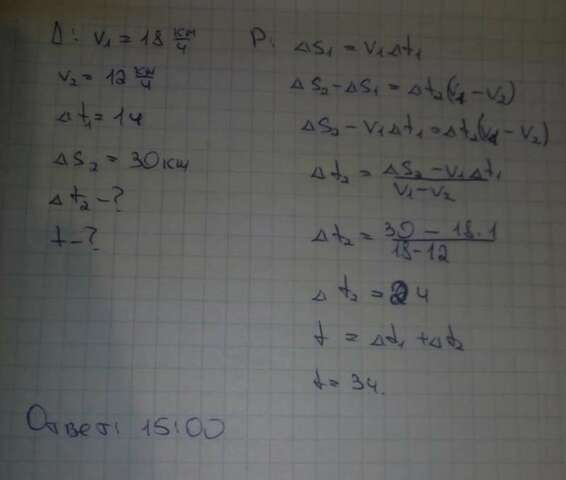 Д: v₁ = 18 км/ч
v₂ = 12 км/ч
Δt₁ = 1 ч
ΔS₂ = 30 км
Δt₂ - ?
t - ?
Р: ΔS₁ = v₁Δt₁
ΔS₂ - ΔS₁ = Δt₂(v₁ - v₂)
ΔS₂ - v₁Δt₁ = Δt₂(v₁ - v₂)
Δt₂ = (ΔS₂ - v₁Δt₁)/(v₁ - v₂)
Δt₂ = (30 - 18·1)/(18 - 12)
Δt₂ = 2 ч
t = Δt₁ + Δt₂
t = 3 ч.
Ответ: 15:00